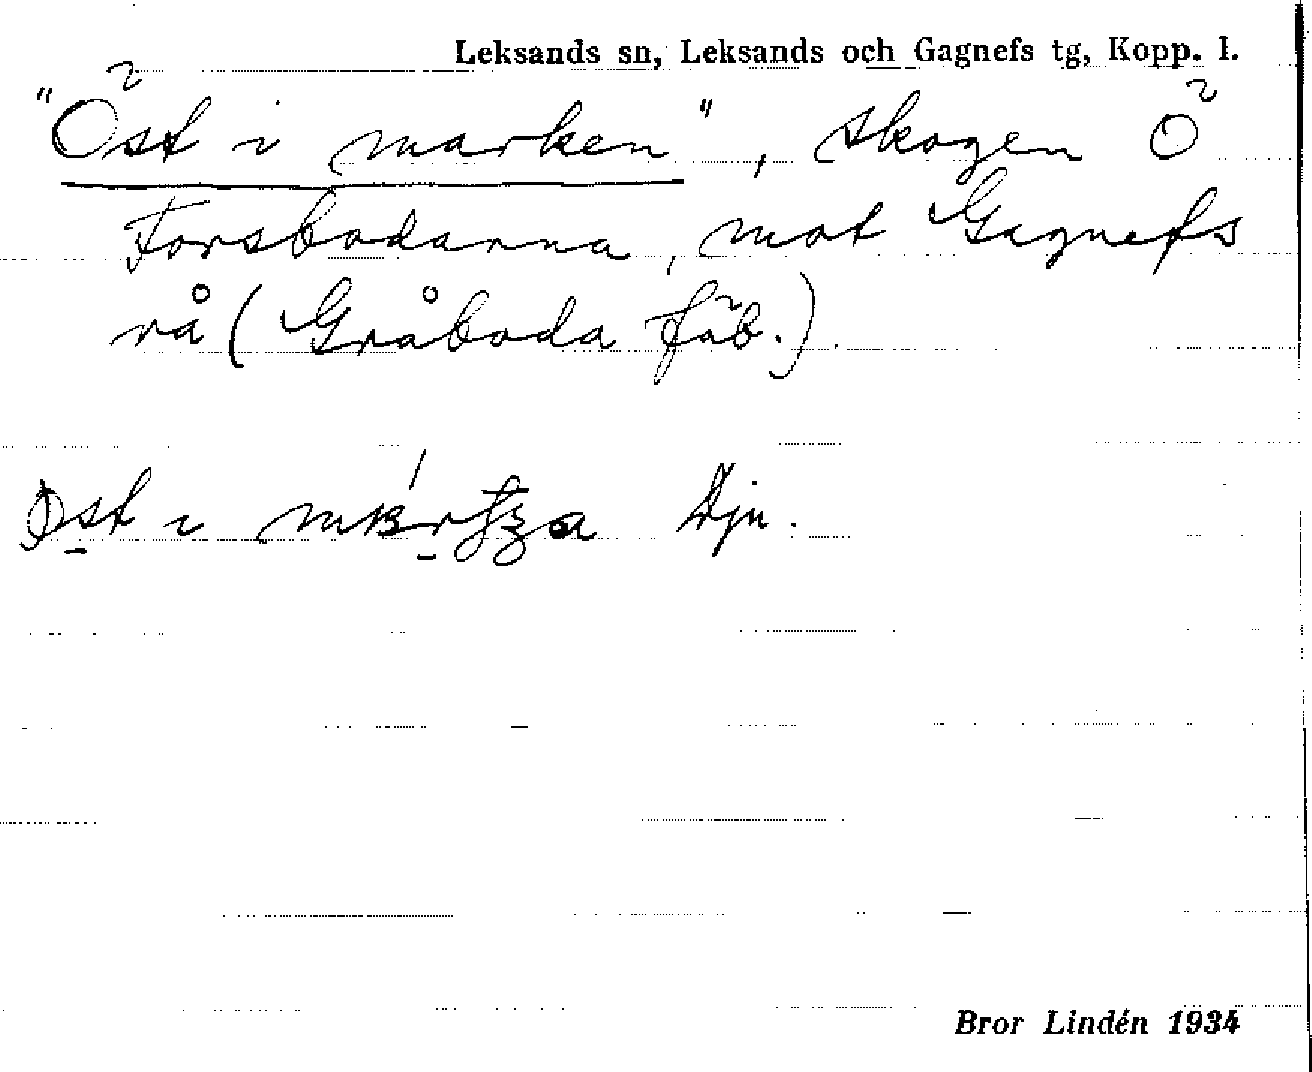 Leksands sn, Leksands och Gagnefs tg, Kopp. l.
"Öst i marken", skogen Ö
Forsbodarna, mot Gagnefs
rå (Gråboda fäb.).
st i Dju.
Bror Lindén 1934